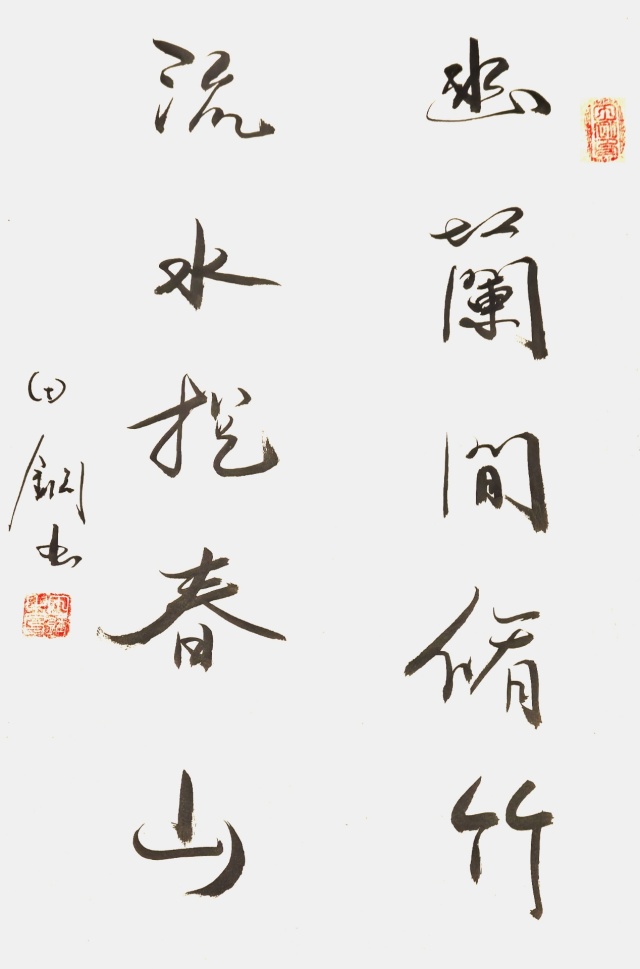 幽蘭間脩竹
流水抱春山
田鋼书